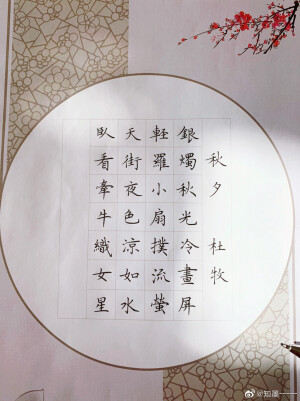 秋夕 杜牧
銀燭秋光冷畫屏
輕羅小扇撲流螢
天街夜色涼如水
臥看牽牛織女星
@知墨一